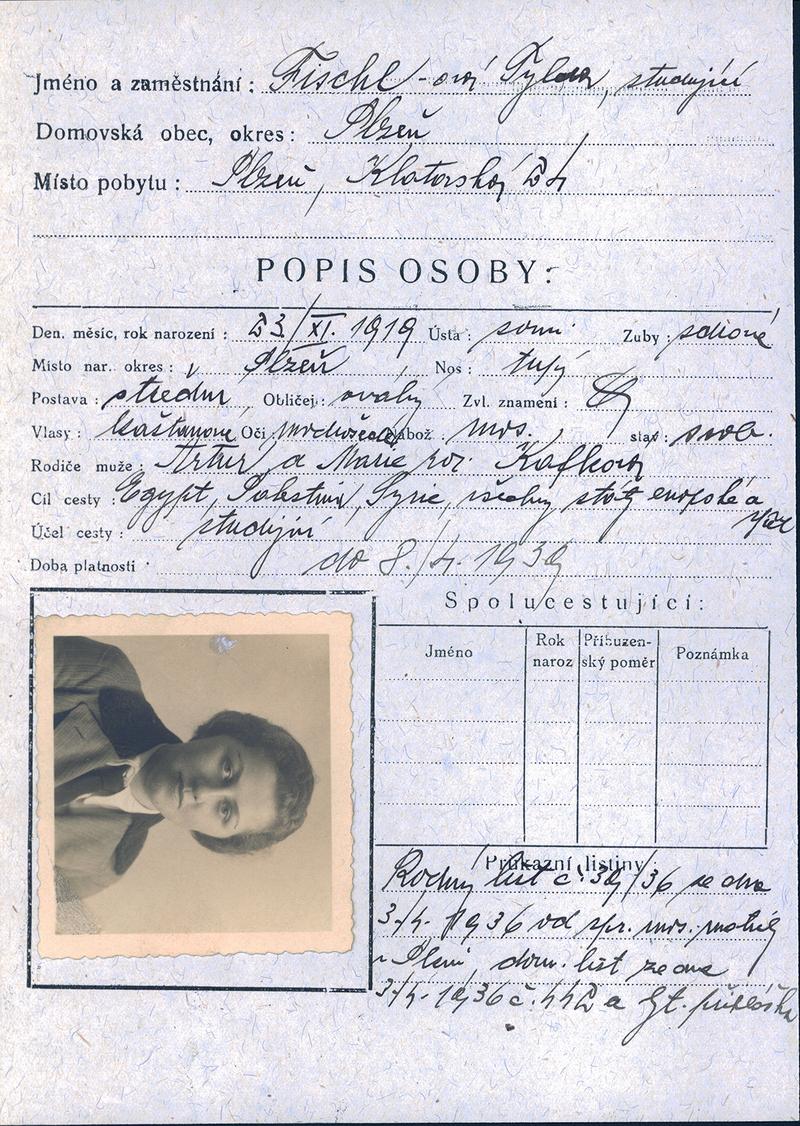 Jméno a zaměstnání: Fischl-ová, studující
Domovská obec, okres: Plzeň
Místo pobytu: Plzeň, Klatovská
POPIS OSOBY:
Den, měsíc, rok narození: 23/XI. 1919 Ústa: Zuby:
Místo nar. okres: Plzeň Nos: tupý
Postava: střední Obličej: oválný Zvl. znamení:
Vlasy: kaštanové Oči: nábož.: mos. stav: svob.
Rodiče muže: Artur a Marie roz. Kafková
Cíl cesty: Egypt, Palestina, Syrie, všechny státy evropské a
Účel cesty: studijní
Doba platnosti do 8./4. 1939
Spolucestující:
Jméno Rok naroz Příbuzenský poměr Poznámka
Průkazní listiny:
Rodný list č. 39/36 ze dne
3/4. 1936 od spr. mos. matriky
v Plzni, dom. list ze dne
3/4. 1936 č. a